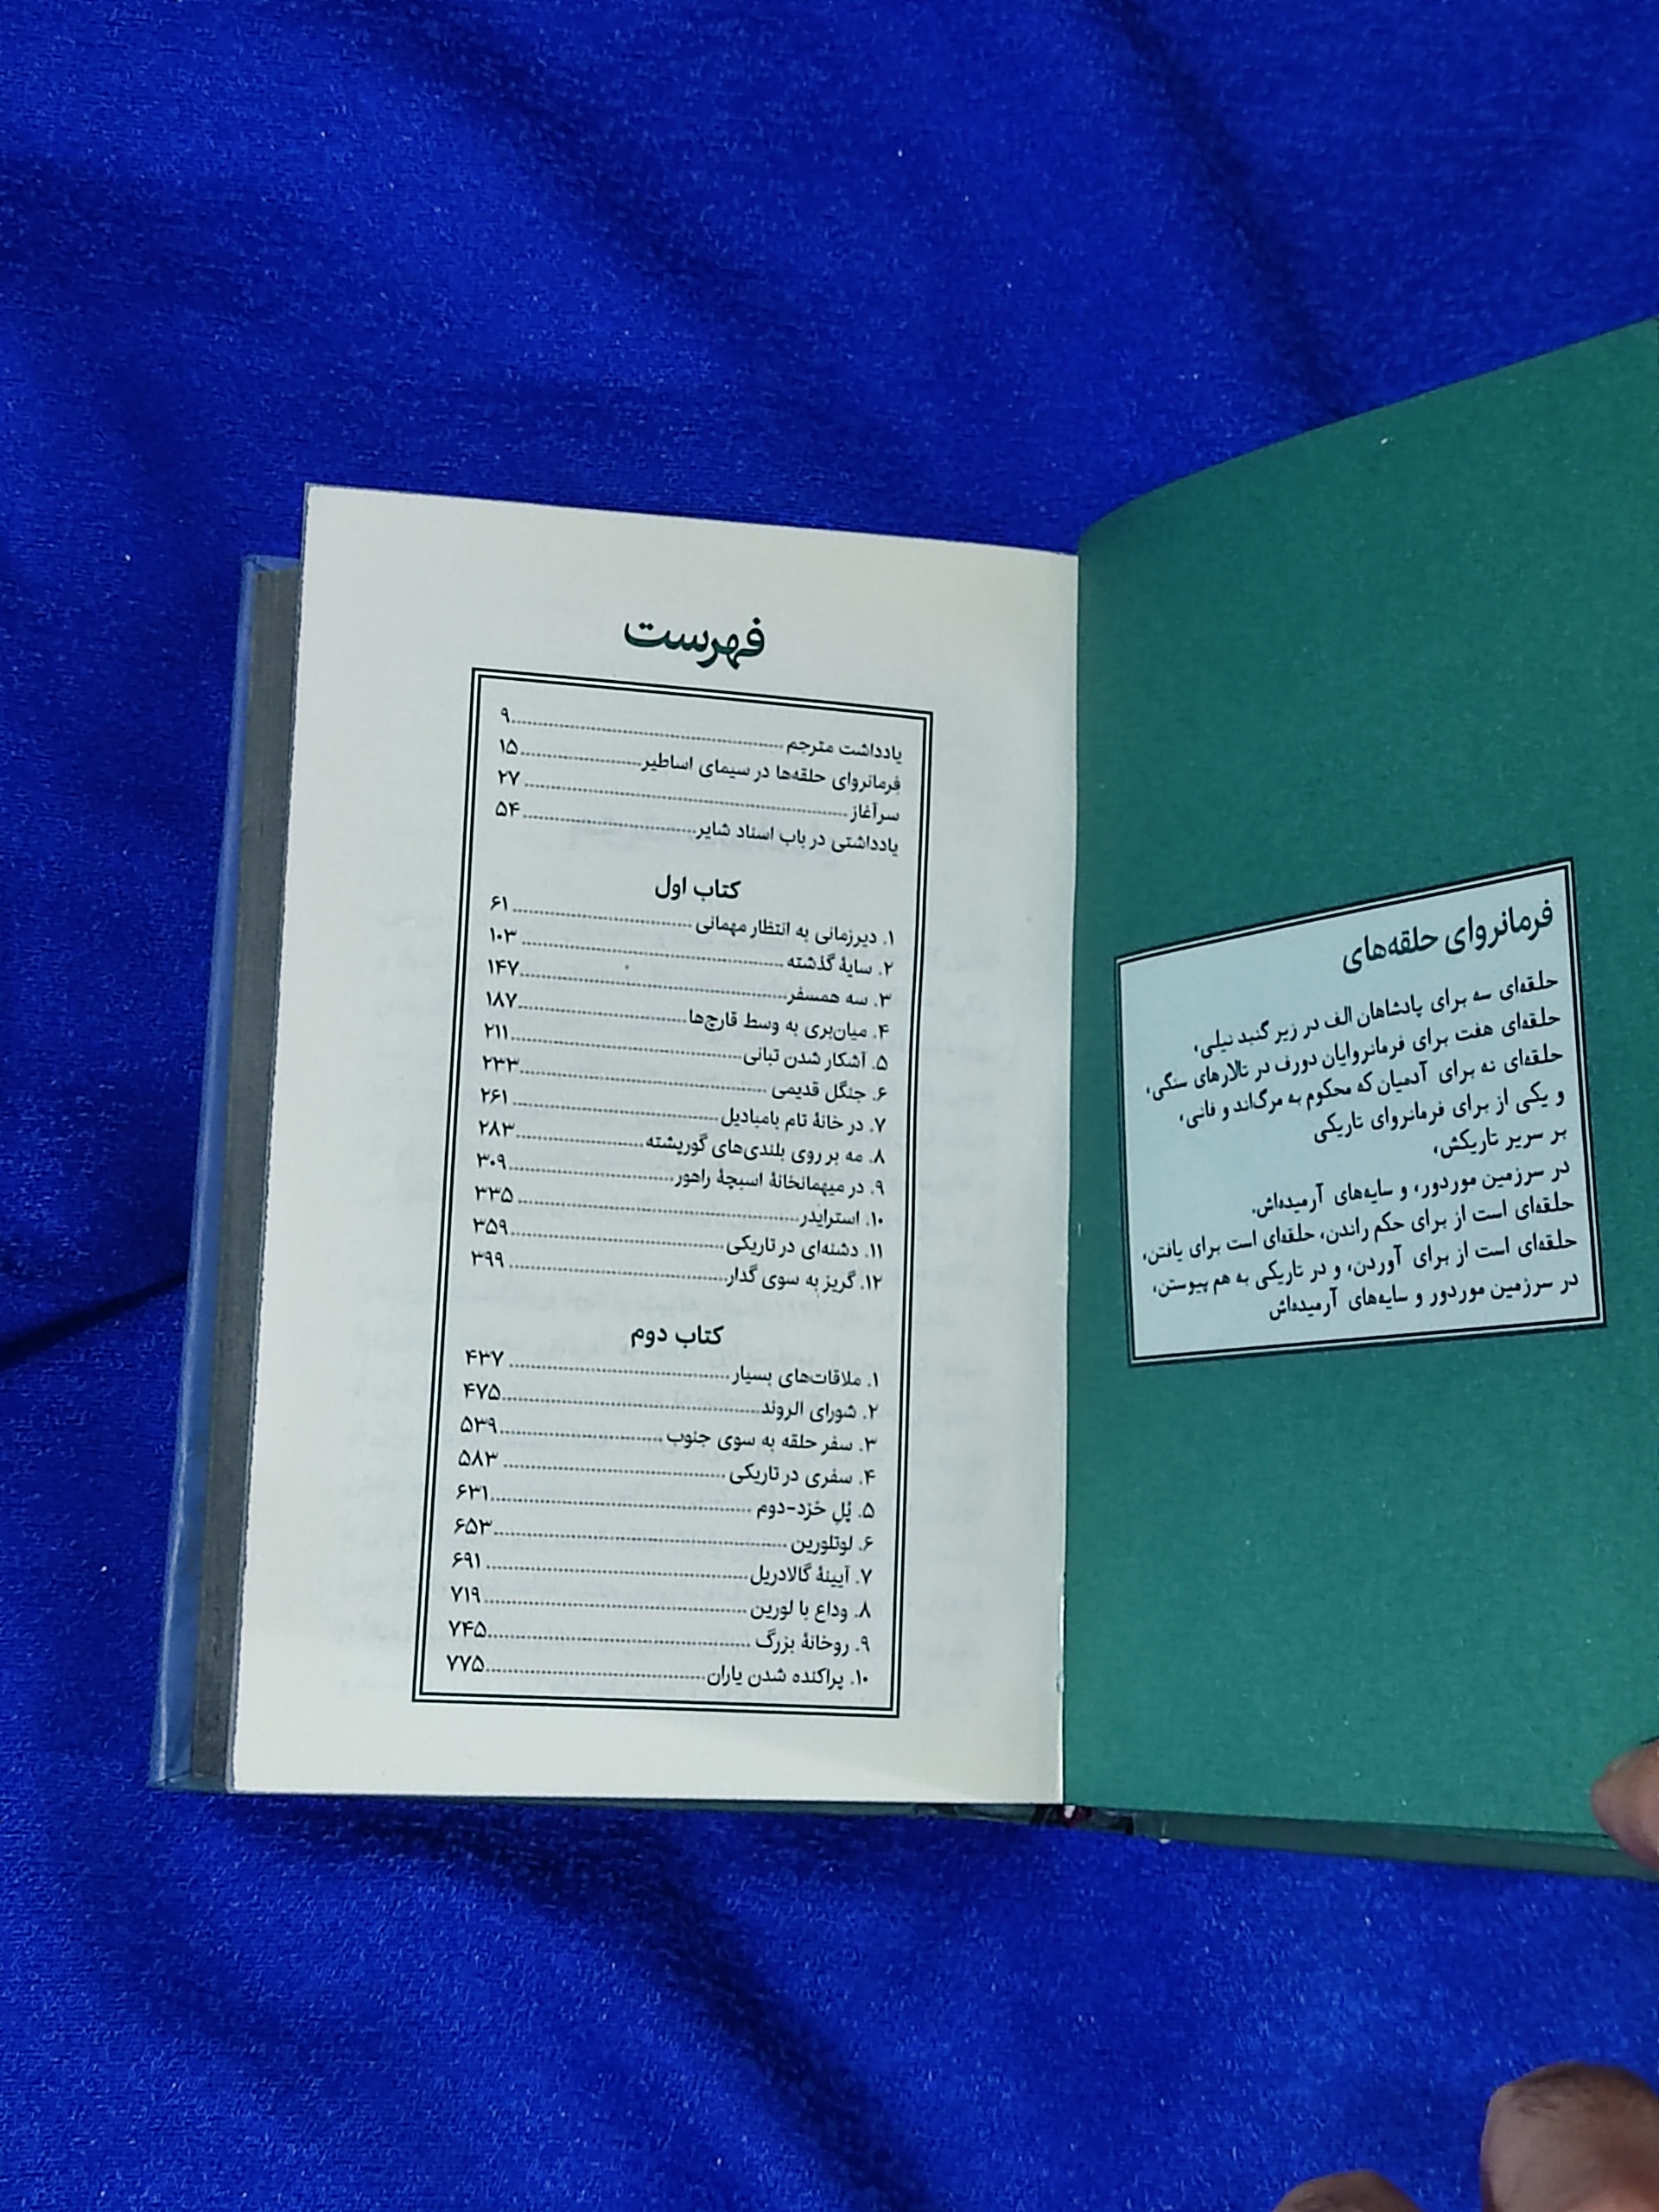 فرمانروای حلقه‌های
حلقه‌ای سه برای پادشاهان الف در زیر گنبد نیلی،
حلقه‌ای هفت برای فرمانروایان دورف در تالارهای سنگی،
حلقه‌ای نه برای آدمیان که محکوم به مرگ‌اند و فانی،
و یکی از برای فرمانروای تاریکی
بر سریر تاریکش،
در سرزمین موردور، و سایه‌های آرمیده‌اش.
حلقه‌ای است از برای حکم راندن، حلقه‌ای است برای یافتن،
حلقه‌ای است از برای آوردن، و در تاریکی به هم پیوستن،
در سرزمین موردور و سایه‌های آرمیده‌اش
فهرست
یادداشت مترجم ۹
فرمانروای حلقه‌ها در سیمای اساطیر ۱۵
سرآغاز ۲۷
یادداشتی در باب اسناد شایر ۵۴
کتاب اول
۱. دیرزمانی به انتظار مهمانی ۶۱
۲. سایهٔ گذشته ۱۰۳
۳. سه همسفر ۱۴۷
۴. میان‌بری به وسط قارچ‌ها ۱۸۷
۵. آشکار شدن تبانی ۲۱۱
۶. جنگل قدیمی ۲۳۳
۷. در خانهٔ تام بامبادیل ۲۶۱
۸. مه بر روی بلندی‌های گورپشته ۲۸۳
۹. در میهمانخانهٔ اسبچهٔ راهور ۳۰۹
۱۰. استرایدر ۳۳۵
۱۱. دشنه‌ای در تاریکی ۳۵۹
۱۲. گریز به سوی گدار ۳۹۹
کتاب دوم
۱. ملاقات‌های بسیار ۴۳۷
۲. شورای الروند ۴۷۵
۳. سفر حلقه به سوی جنوب ۵۳۹
۴. سفری در تاریکی ۵۸۳
۵. پُلِ خزد-دوم ۶۳۱
۶. لوتلورین ۶۵۳
۷. آیینهٔ گالادریل ۶۹۱
۸. وداع با لورین ۷۱۹
۹. روخانهٔ بزرگ ۷۴۵
۱۰. پراکنده شدن یاران ۷۷۵